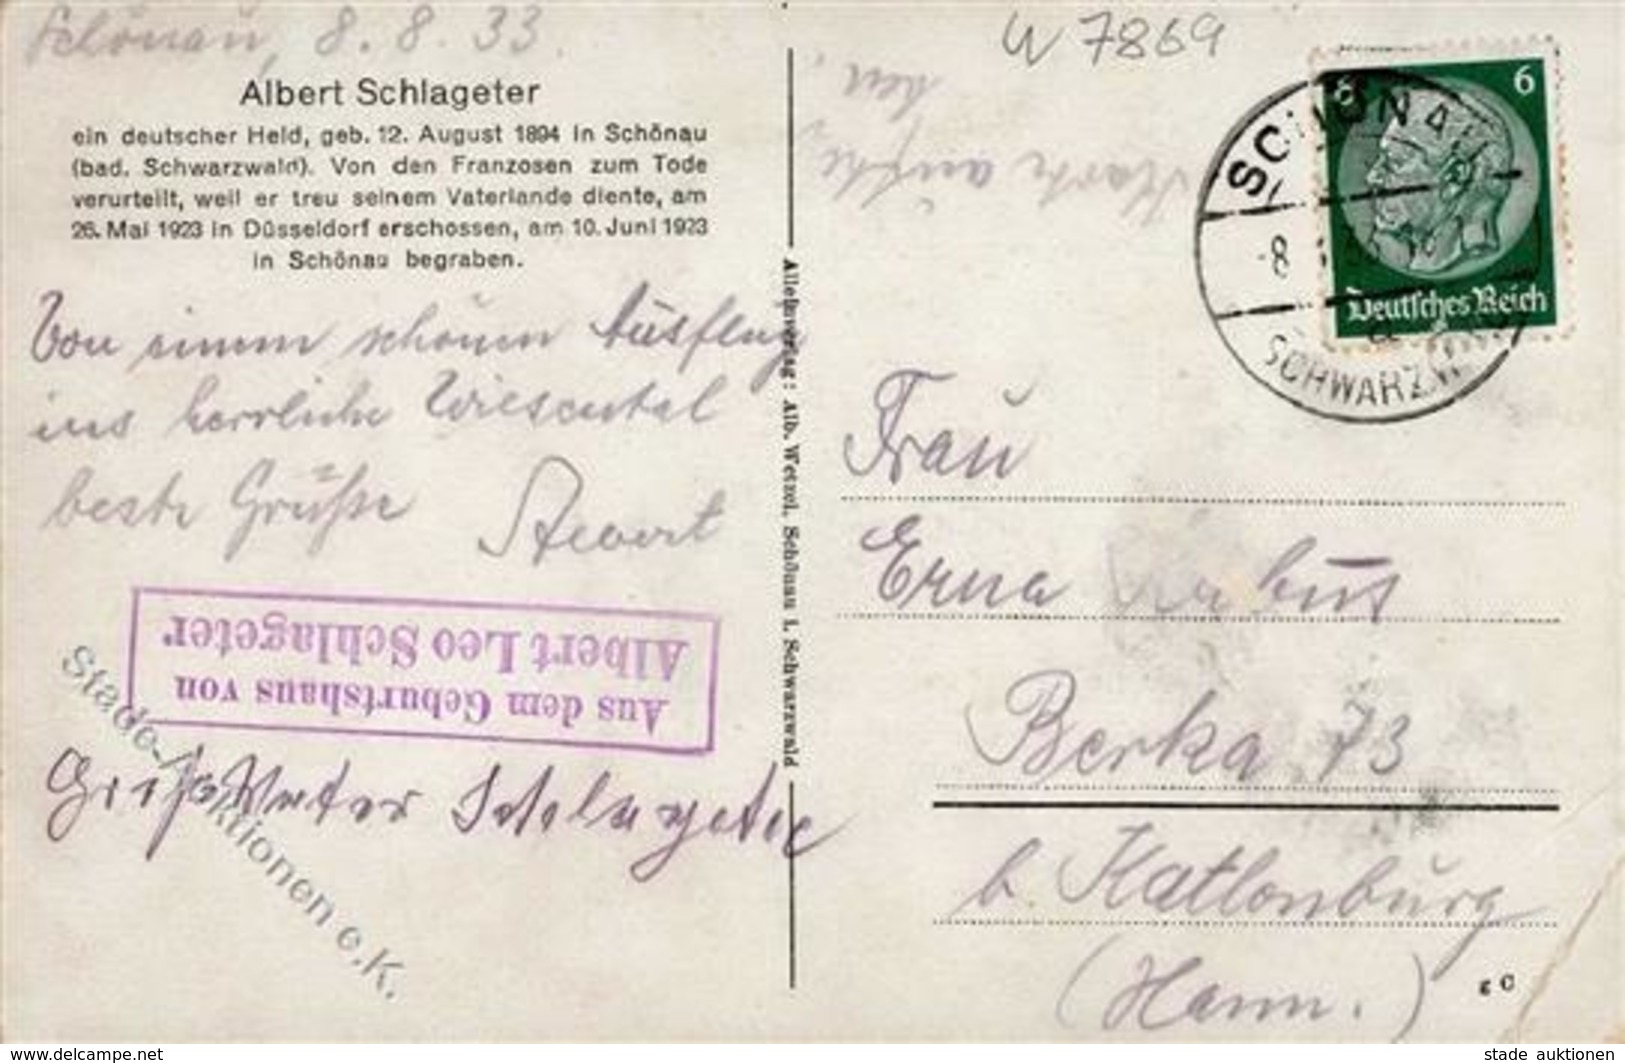 Schönau, 8. 8. 33.
Albert Schlageter
ein deutscher Held, geb. 12. August 1894 in Schönau
(bad. Schwarzwald). Von den Franzosen zum Tode
verurteilt, weil er treu seinem Vaterlande diente, am
26. Mai 1923 in Düsseldorf erschossen, am 10. Juni 1923
in Schönau begraben.
Von einem schönen Ausflug
ins herrliche Wiesental
beste Grüße
Aus dem Geburtshaus von
Albert Leo Schlageter
Vater Schlageter
Stade-Aktionen e.K.
Alleinverlag: Alb. Wetzel, Schönau i. Schwarzwald
W 7869
6
Deutsches Reich
SCHÖNAU
-8
SCHWARZW
Frau
Erna
Berka 73
b. Katlenburg
(Hann.)
www.delcampe.net
stade auktionen